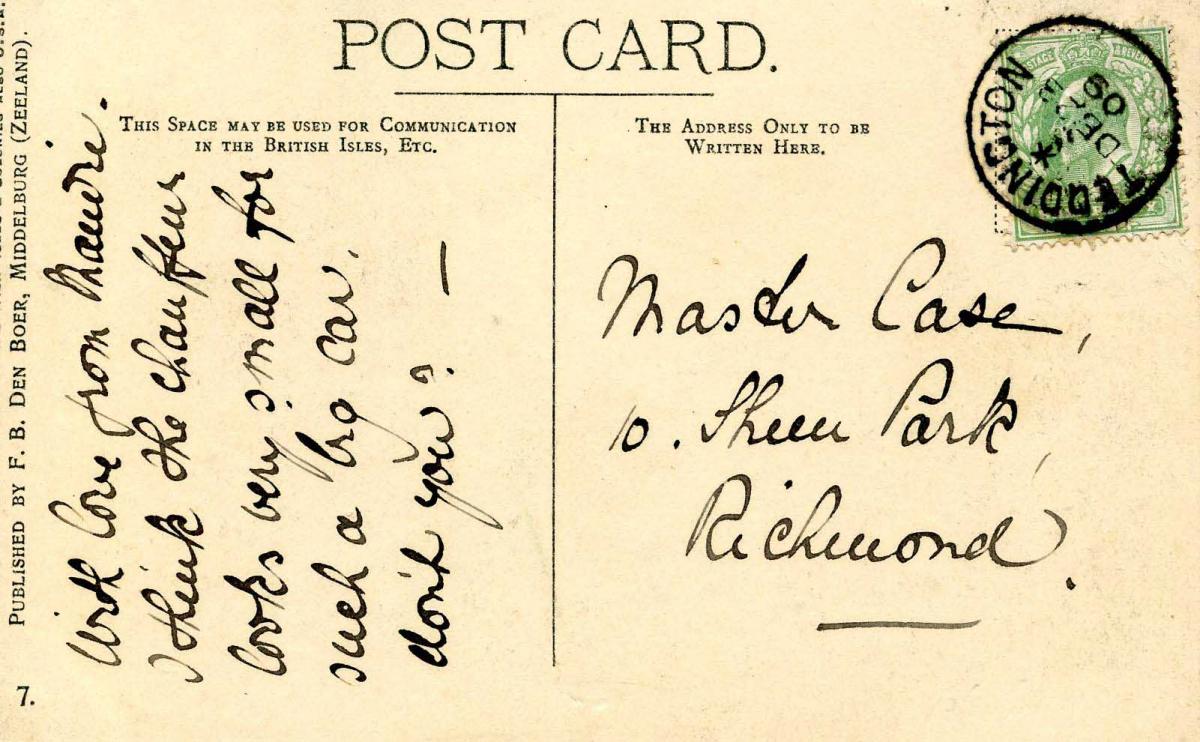 POST CARD.
THIS SPACE MAY BE USED FOR COMMUNICATION
IN THE BRITISH ISLES, ETC.
THE ADDRESS ONLY TO BE
WRITTEN HERE.
TEDDINGTON
DE
09
With love from Maudie.
I think the chauffeur
looks very small for
such a big car,
don't you? —
Master Case,
10. Sheen Park,
Richmond.
PUBLISHED BY F. B. DEN BOER, MIDDELBURG (ZEELAND).
7.